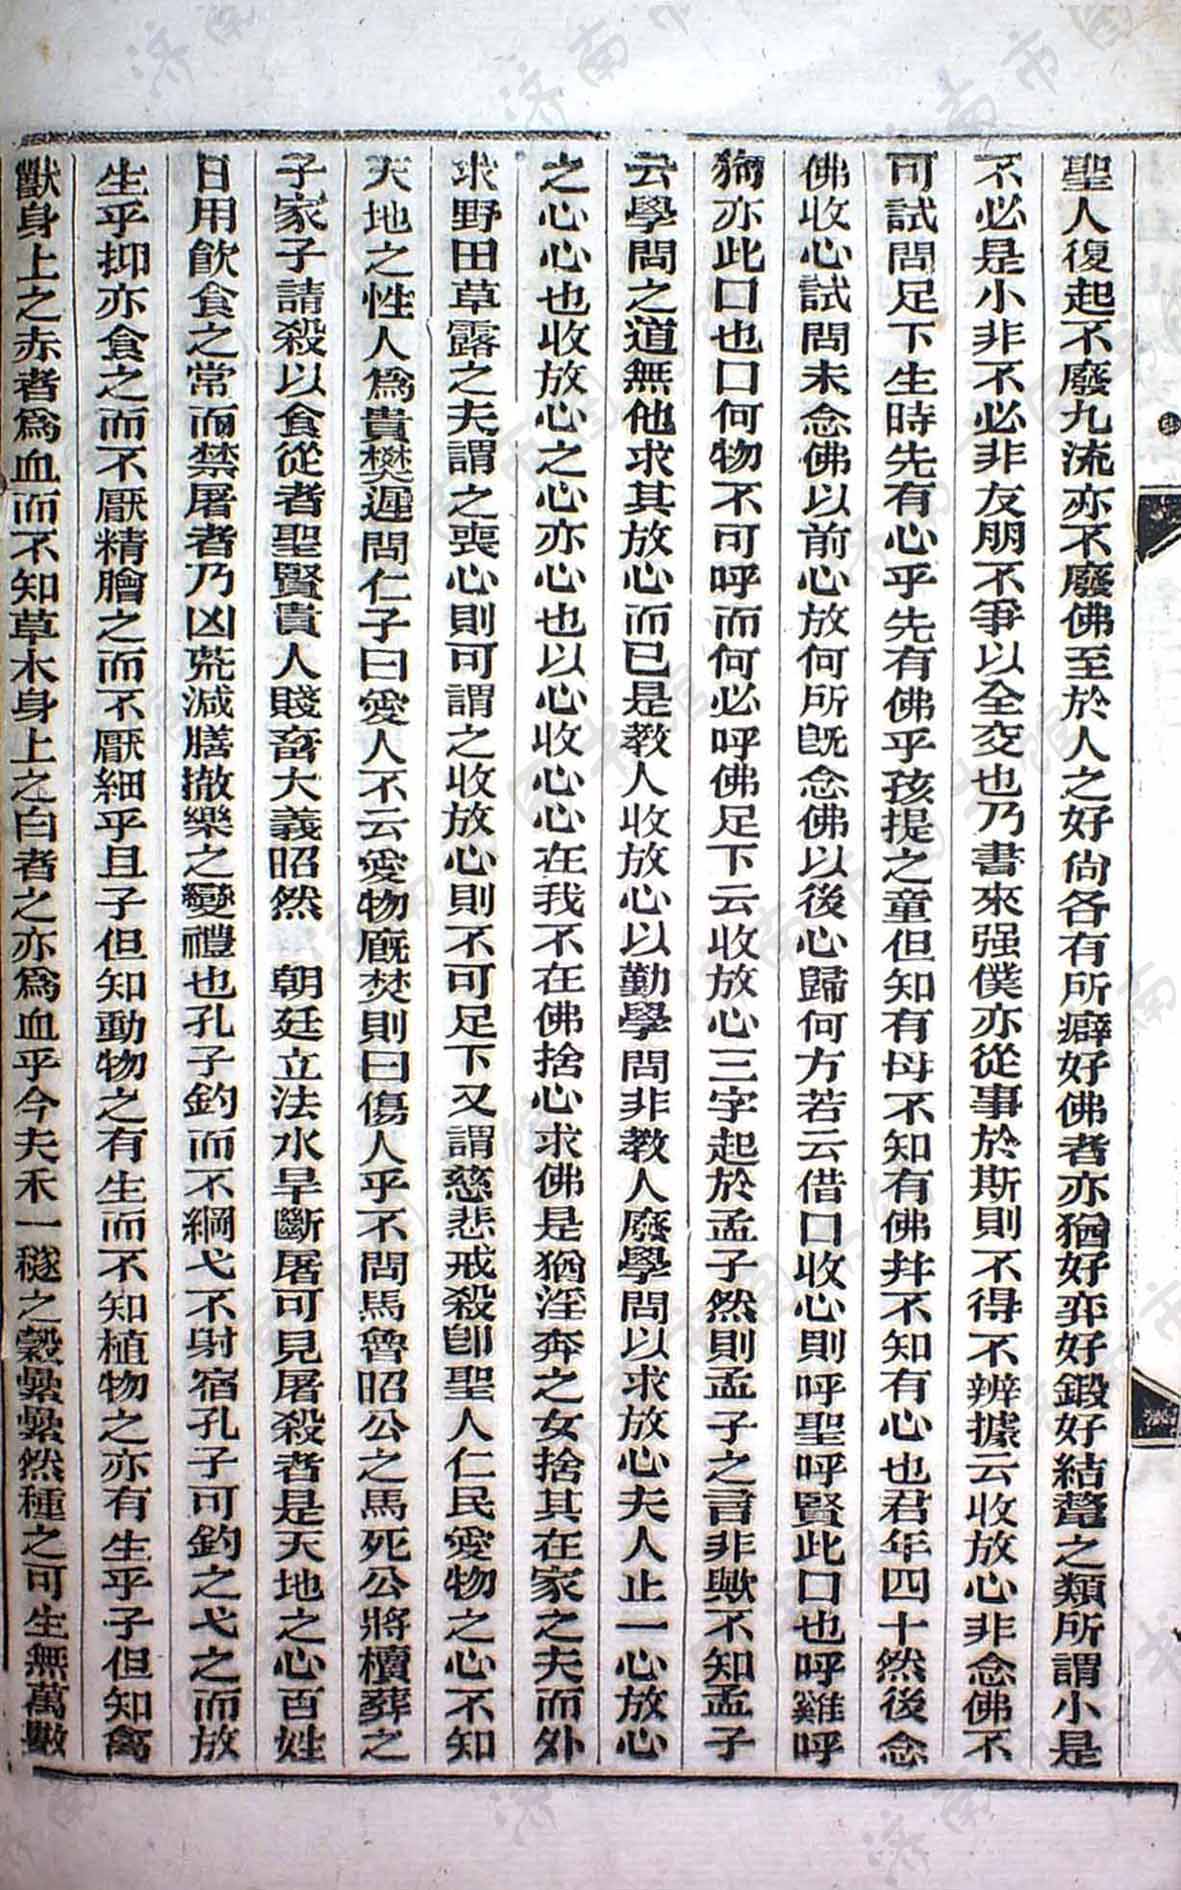 聖人復起不廢九流亦不廢佛至於人之好尚各有所癖好佛者亦猶好弈好鍛好結氅之類所謂小是
不必是小非不必非友朋不爭以全交也乃書來强僕亦從事於斯則不得不辨據云收放心非念佛不
可試問足下生時先有心乎先有佛乎孩提之童但知有母不知有佛并不知有心也君年四十然後念
佛收心試問未念佛以前心放何所旣念佛以後心歸何方若云借口收心則呼聖呼賢此口也呼雞呼
狗亦此口也口何物不可呼而何必呼佛足下云收放心三字起於孟子然則孟子之言非歟不知孟子
云學問之道無他求其放心而已是教人收放心以勤學問非教人廢學問以求放心夫人止一心放心
之心心也收放心之心亦心也以心收心心在我不在佛捨心求佛是猶淫奔之女捨其在家之夫而外
求野田草露之夫謂之喪心則可謂之收放心則不可足下又謂慈悲戒殺卽聖人仁民愛物之心不知
天地之性人爲貴樊遲問仁子曰愛人不云愛物廐焚則曰傷人乎不問馬魯昭公之馬死公將櫝葬之
子家子請殺以食從者聖賢貴人賤畜大義昭然 朝廷立法水旱斷屠可見屠殺者是天地之心百姓
日用飮食之常而禁屠者乃凶荒減膳撤樂之變禮也孔子釣而不綱弋不射宿孔子可釣之弋之而放
生乎抑亦食之而不厭精膾之而不厭細乎且子但知動物之有生而不知植物之亦有生乎子但知禽
獸身上之赤者爲血而不知草木身上之白者之亦爲血乎今夫禾一穟之穀纍纍然種之可生無萬數